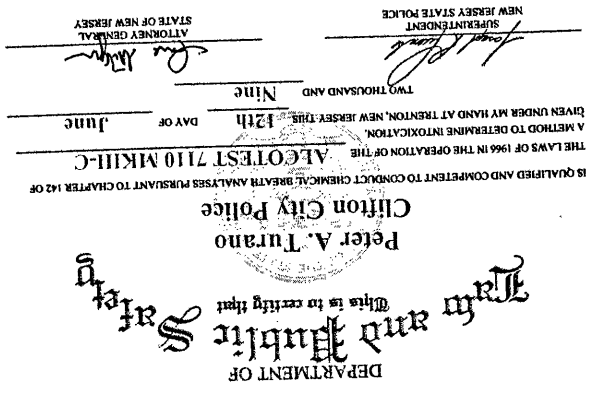 DEPARTMENT OF
Law and Public Safety
This is to certify that
Peter A. Turano
Clifton City Police
IS QUALIFIED AND COMPETENT TO CONDUCT CHEMICAL BREATH ANALYSES PURSUANT TO CHAPTER 142 OF
THE LAWS OF 1966 IN THE OPERATION OF THE ALCOTEST 7110 MKIII-C
A METHOD TO DETERMINE INTOXICATION.
GIVEN UNDER MY HAND AT TRENTON, NEW JERSEY THIS 12th DAY OF June
TWO THOUSAND AND Nine
SUPERINTENDENT
NEW JERSEY STATE POLICE
ATTORNEY GENERAL
STATE OF NEW JERSEY